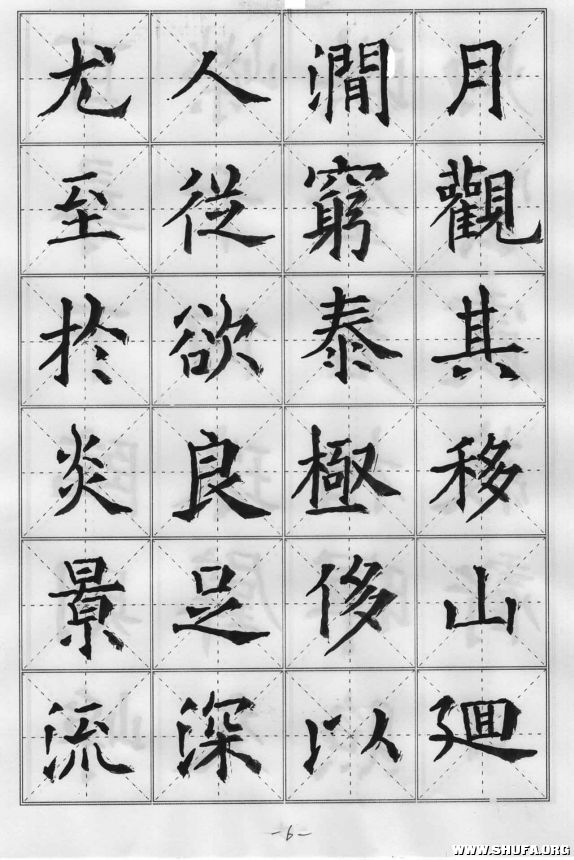 月觀其移山廻
澗窮泰極侈以
人從欲良足深
尤至於炎景流
-6-
WWW.SHUFA.ORG